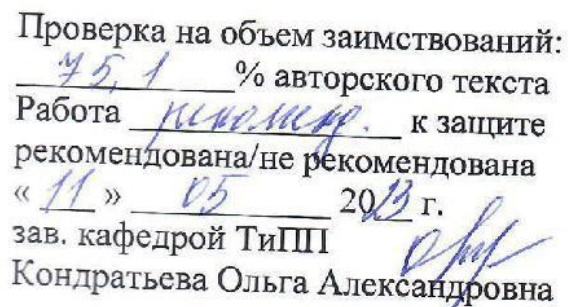 Проверка на объем заимствований:
75,1 % авторского текста
Работа рекоменд. к защите
рекомендована/не рекомендована
« 11 » 05 2023 г.
зав. кафедрой ТиПП
Кондратьева Ольга Александровна